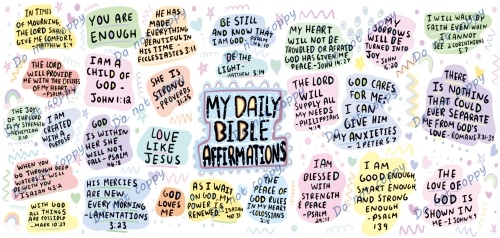 IN TIMES
OF MOURNING,
THE LORD SHALL
GIVE ME COMFORT.
- MATTHEW 5:4
YOU ARE
ENOUGH
HE HAS
MADE
EVERYTHING
BEAUTIFUL IN
HIS TIME -
ECCLESIASTES 3:11
BE STILL
AND KNOW THAT
I AM GOD - PSALM
46:10
MY HEART
WILL NOT BE
TROUBLED OR AFRAID
GOD HAS GIVEN ME
PEACE - JOHN
14:27
MY
SORROWS
WILL BE
TURNED INTO
JOY
- JOHN
I WILL WALK BY
FAITH EVEN WHEN
I CANNOT
SEE - 2 CORINTHIANS
5:7
THE LORD
WILL PROVIDE
ME WITH THE DESIRES
OF MY HEART
- PSALM
I AM A
CHILD OF
GOD -
JOHN 1:12
SHE IS
STRONG
- PROVERBS
31:25
BE THE
LIGHT -
MATTHEW 5:14
MY DAILY
BIBLE
AFFIRMATIONS
THE LORD
WILL SUPPLY
ALL MY
NEEDS -
PHILIPPIANS
4:19
GOD CARES
FOR ME;
I CAN
GIVE HIM
MY ANXIETIES
- 1 PETER 5:7
THERE
IS NOTHING
THAT COULD
EVER SEPARATE
ME FROM GOD'S
LOVE - ROMANS 8:38-39
THE JOY
OF THE LORD
IS MY STRENGTH
- NEHEMIAH
8:10
I AM
CREATED
WITH A
PURPOSE
GOD
IS WITHIN
HER SHE
WILL NOT
FALL - PSALM
LOVE LIKE
JESUS
WHEN YOU
GO THROUGH DEEP
WATERS I WILL
BE WITH YOU
- ISAIAH 43:2
WITH GOD
ALL THINGS
ARE POSSIBLE
- MARK 10:27
HIS MERCIES
ARE NEW
EVERY MORNING
- LAMENTATIONS
3:23
GOD
LOVES
ME
AS I WAIT
ON GOD, MY
POWER IS
RENEWED - ISAIAH
40:31
THE
PEACE OF
GOD RULES
IN MY HEART
- COLOSSIANS
3:15
I AM
BLESSED
WITH
STRENGTH
& PEACE
- PSALM
29:11
I AM
GOOD ENOUGH,
SMART ENOUGH,
AND STRONG
ENOUGH
- PSALM
139
THE
LOVE OF
GOD IS
SHOWN IN
ME - 1 JOHN
Do not copy